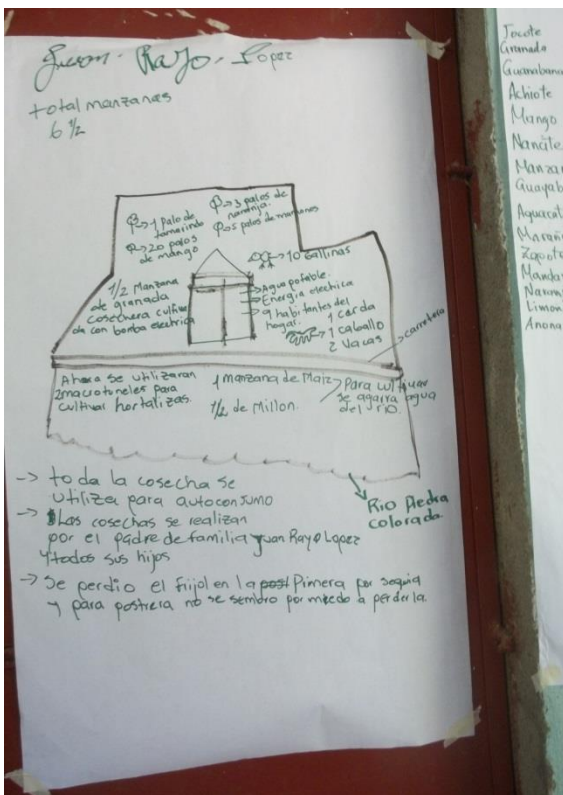 Juan Rayo Lopez
total manzanas
6 1/2
1 Palo de tamarindo
20 palos de mango
3 palos de naranja.
5 palos de mamones
10 Gallinas
1/2 Manzana
de granada
cosechera cultiva
da con bomba electrica
Agua potable.
Energia electrica
9 habitantes del
hogar.
1 cerda
1 caballo
2 vacas
carretera
Ahora se utilizaran
2 macrotuneles para
cultivar hortalizas.
1 manzana de Maiz
1/2 de Millon.
Para cultivar
se agarra agua
del rio.
Rio Piedra
colorada
-> toda la cosecha se
utiliza para autoconsumo
-> Las cosechas se realizan
por el padre de familia Juan Rayo Lopez
y todos sus hijos
-> Se perdio el frijol en la Pimera por sequia
y para postrera no se sembro por miedo a perderla.
Jocote
Granada
Guanabana
Achiote
Mango
Nancite